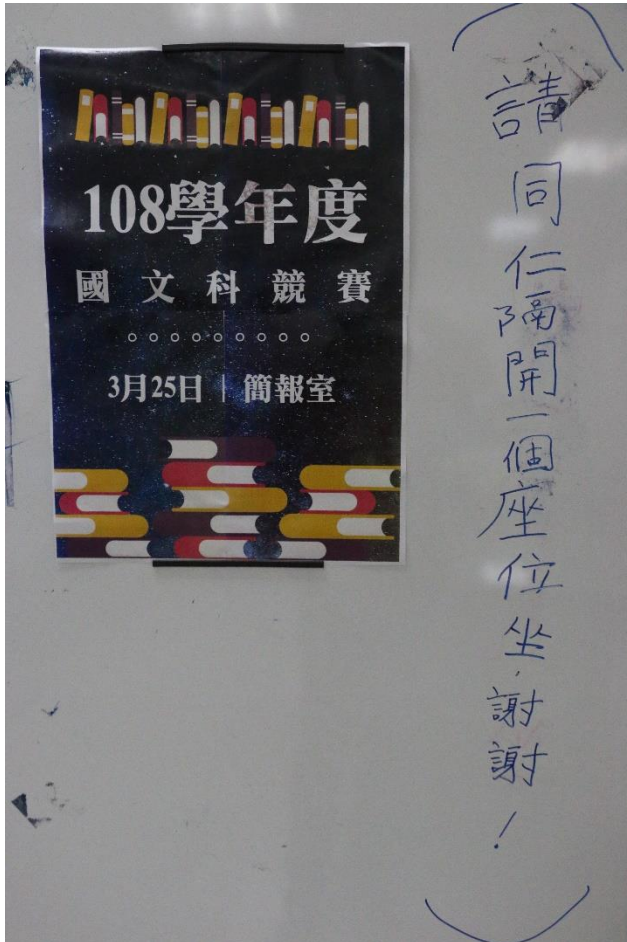 108學年度
國文科競賽
3月25日 | 簡報室
(請同仁隔開一個座位坐,謝謝!)